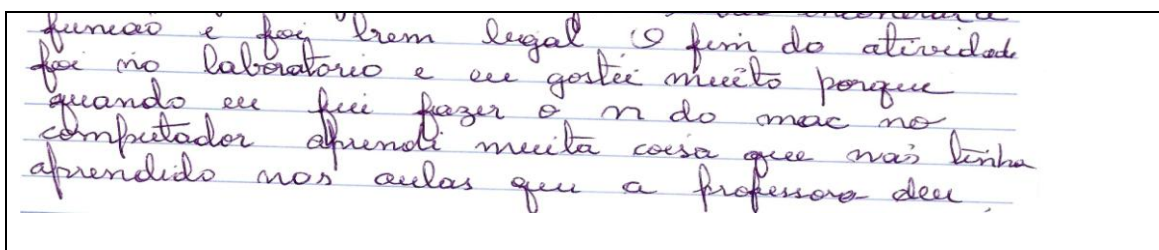 funcao e foi bem legal O fim do atividade
foi no laboratorio e eu gostei muito porque
quando eu fui fazer o n do mac no
computador aprendi muita coisa que nais tinha
aprendido nos aulas que a professora deu.